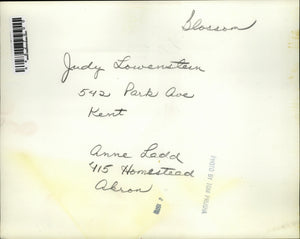 Blossom
Judy Lowenstein
542 Park Ave
Kent
Anne Ladd
415 Homestead
Akron
PHOTO BY TOM PRUSHA